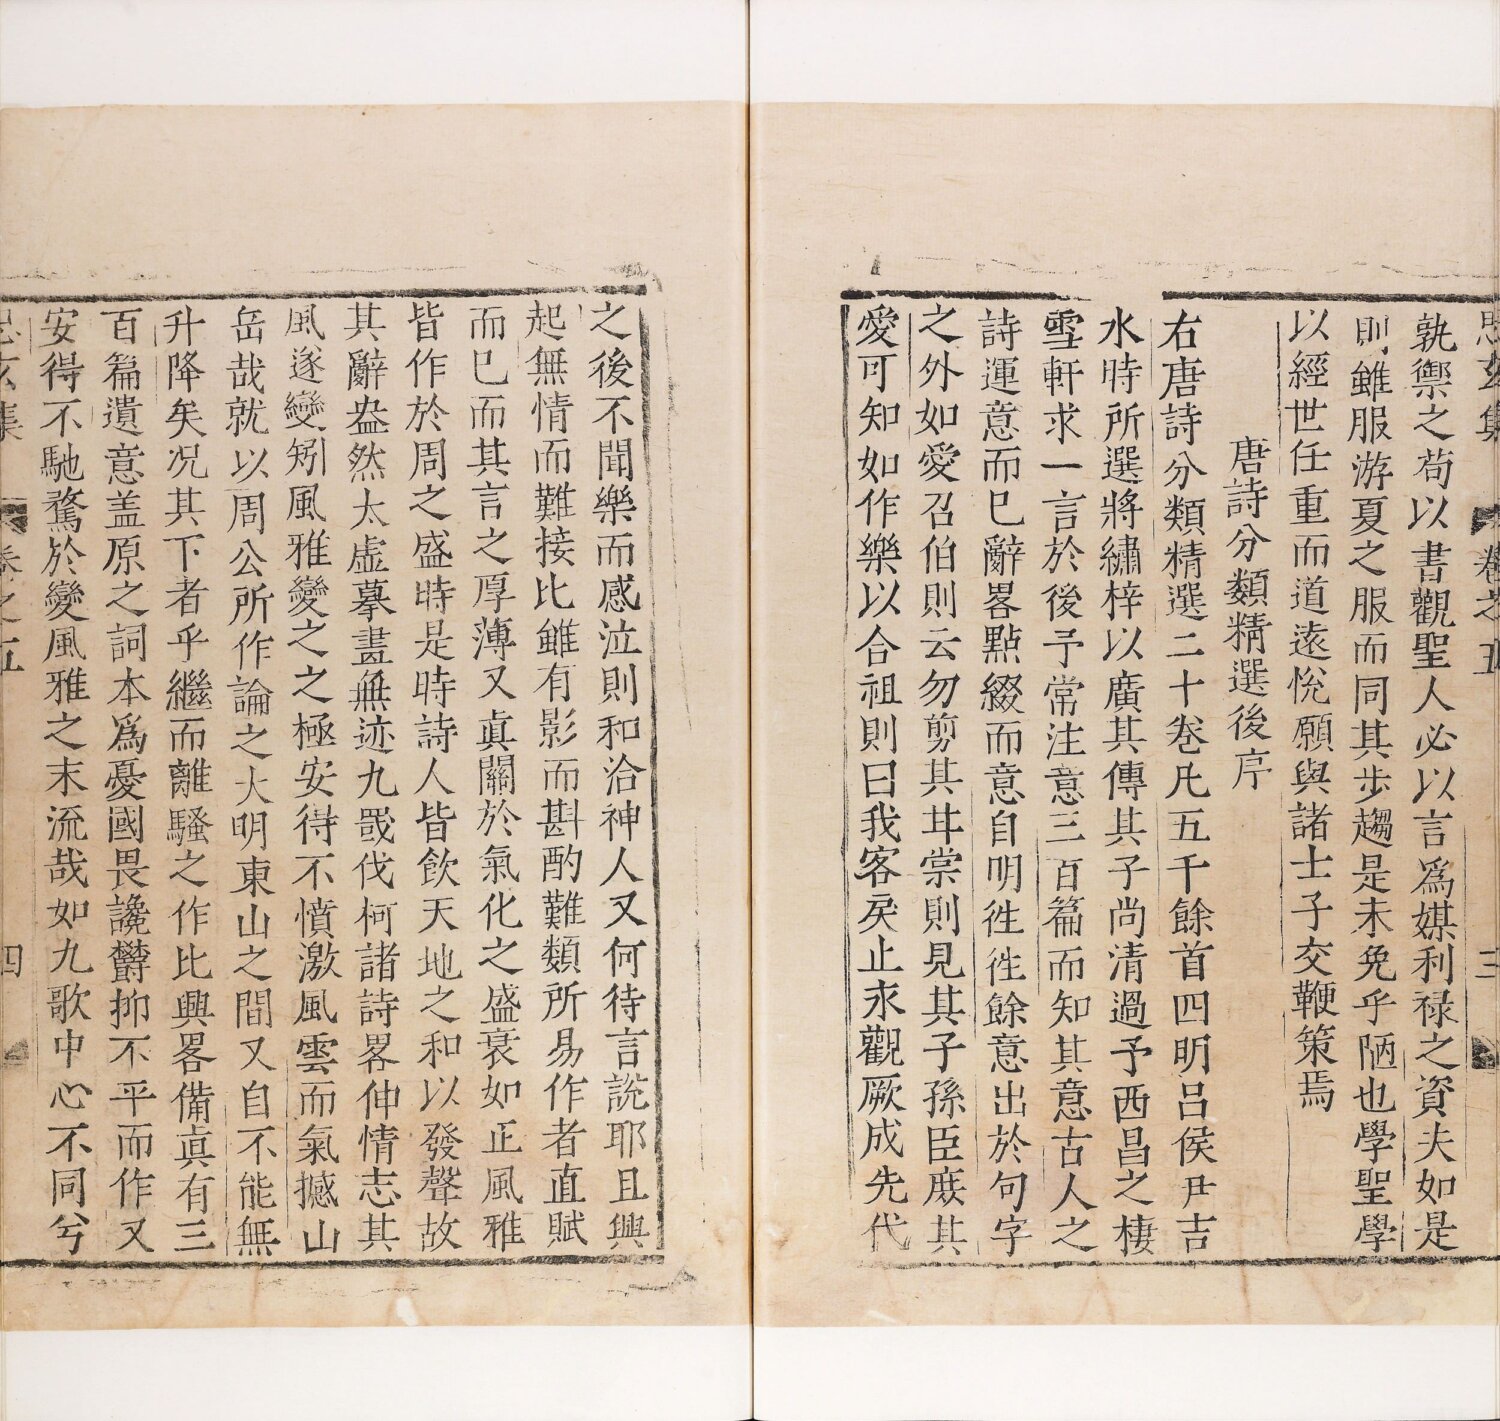 思玄集 卷之五 三
孰禦之苟以書觀聖人必以言爲媒利禄之資夫如是
則雖服游夏之服而同其步趨是未免乎陋也學聖學
以經世任重而道遠悦願與諸士子交鞭策焉
唐詩分類精選後序
右唐詩分類精選二十卷凡五千餘首四明吕侯尹吉
水時所選將繡梓以廣其傳其子尚清過予西昌之棲
雪軒求一言於後予常注意三百篇而知其意古人之
詩運意而已辭畧點綴而意自明徃徃餘意出於句字
之外如愛召伯則云勿剪其甘棠則見其子孫臣庶其
愛可知如作樂以合祖則曰我客戾止永觀厥成先代
之後不聞樂而感泣則和洽神人又何待言説耶且興
起無情而難接比雖有影而斟酌難類所易作者直賦
而已而其言之厚薄又眞關於氣化之盛衰如正風雅
皆作於周之盛時是時詩人皆飲天地之和以發聲故
其辭盎然太虚摹畫無迹九罭伐柯諸詩畧伸情志其
風遂變矧風雅變之之極安得不憤激風雲而氣撼山
岳哉就以周公所作論之大明東山之間又自不能無
升降矣况其下者乎繼而離騷之作比興畧備眞有三
百篇遺意盖原之詞本爲憂國畏讒欝抑不平而作又
安得不馳騖於變風雅之末流哉如九歌中心不同兮
思玄集 卷之五 四